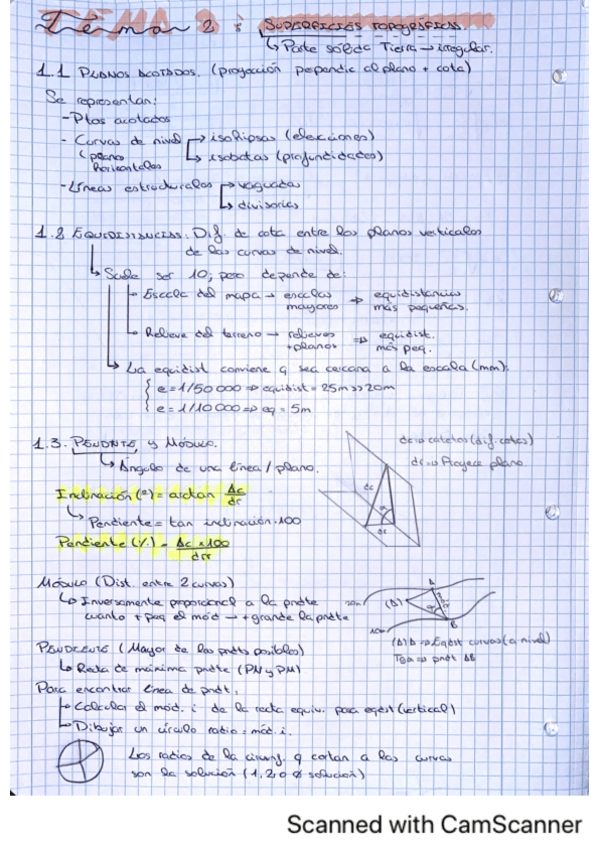 Tema 2: SUPERFICIES TOPOGRÁFICAS.
↳ Parte sólida Tierra → irregular.
1.1 PLANOS ACOTADOS. (proyección perpendic al plano + cota)
Se representan:
- Ptos acotados
- Curvas de nivel → isohipsas (elevaciones)
(planos horizontales ↳ isobatas (profundidades)
- Líneas estructurales → vaguada
↳ divisorias
1.2 EQUIDISTANCIAS: Dif. de cota entre los planos verticales
de las curvas de nivel.
↳ Suele ser 10; pero depende de:
Escala del mapa → escalas mayores ⇒ equidistancias más pequeñas.
Relieve del terreno → relieves +planos ⇒ equidist. más peq.
↳ La equidist conviene q sea cercana a la escala (mm):
e = 1/50 000 ⇒ equidist = 25m >> 20m
e = 1/10 000 ⇒ eq = 5m
1.3. PENDNTE, y MÓDULO.
↳ Ángulo de una línea / plano.
dc ⇒ catetos (dif. cotas)
dr ⇒ Proyecc plano
dc
α
dr
Inclinación (º) = arctan Δc / dr
↳ Pendiente = tan inclinación · 100
Pendiente (%) = Δc × 100 / drr
MÓDULO (Dist. entre 2 curvas)
↳ Inversamente proporcional a la pndte
cuanto + peq el mód → + grande la pndte
20m
10m
A
(Δ)
B
(Δ) Δ ⇒ Eqdst curvas (a nivel)
Tgα ⇒ pndt AB
PENDIENTE (Mayor de las pndts posibles)
↳ Recta de máxima pndte (PN y PM)
Para encontrar línea de pndt:
Calcular el mód. i de la recta equiv. para eqdst (vertical)
Dibujar un círculo radio = mód. i.
Los radios de la circunf. q cortan a las curvas
son la solución (1, 2, o ø solución)
Scanned with CamScanner